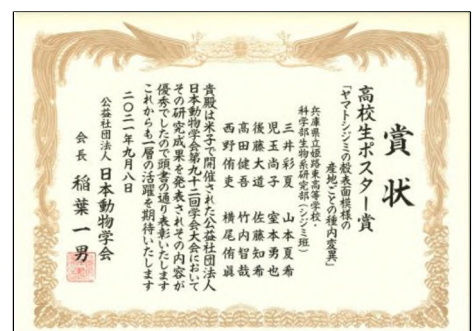 賞状
高校生ポスター賞
「ヤマトシジミの殻表面模様の
産地ごとの種内変異」
兵庫県立姫路東高等学校・
科学部生物系研究部(シジミ班)
三井彩夏 山本夏希
児玉尚子 室本勇也
後藤大道 佐藤知希
高田健吾 竹内智哉
西野侑吏 横尾侑眞
貴殿は米子で開催された公益社団法人
日本動物学会第九十二回学会大会において
その研究成果を発表されその内容が
優秀でしたので頭書の通り表彰いたします
これからも一層の活躍を期待いたします
二〇二一年九月八日
公益社団法人 日本動物学会
会長 稲葉一男